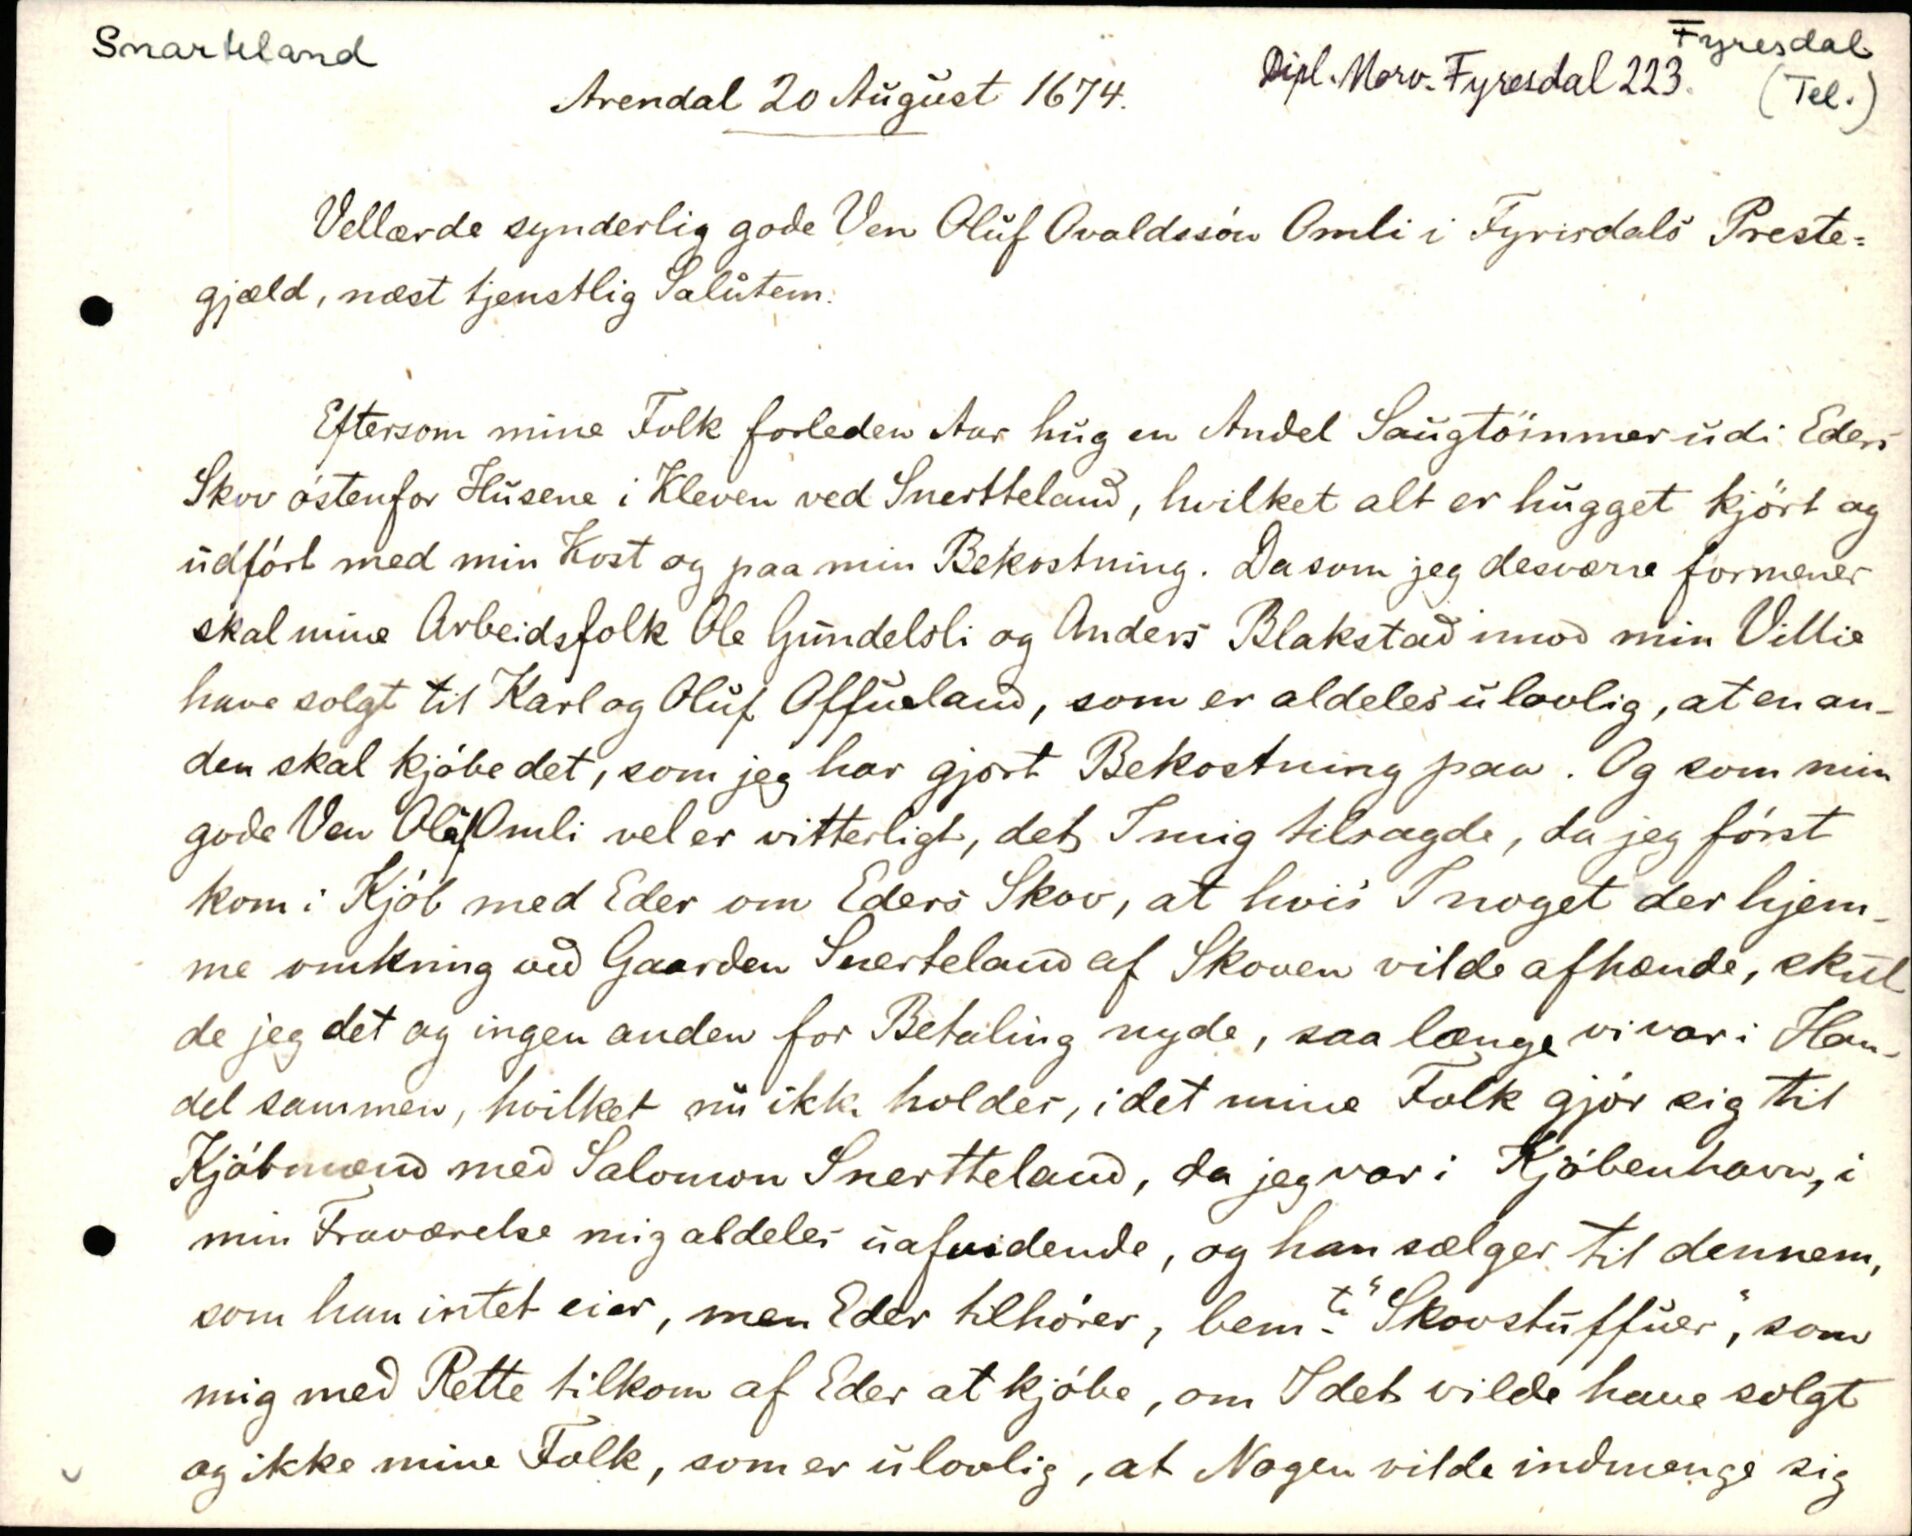 Snarteland
Fyresdal
(Tel.)
Dipl. Norv. Fyresdal 223.
Arendal 20 August 1674.
Vellærde synderlig gode Ven Oluf Ovaldssón Omli i Fyrisdals Preste=
gjæld, næst tjenstlig Salutem.
Eftersom mine Folk forleden Aar hug en Andel Saugtömmer udi Eders
Skov óstenfor Husene i Kleven ved Snertteland, hvilket alt er hugget kjört og
udfórt med min Kost og paa min Bekostning. Da som jeg desværre formener
skal mine Arbeidsfolk Ole Gundelsli og Anders Blakstad imod min Villie
have solgt til Karl og Oluf Offueland, som er aldeles ulovlig, at en an-
den skal kjóbe det, som jeg har gjort Bekostning paa. Og som min
gode Ven Oluf Omli vel er vitterligt, det I mig tilsagde, da jeg fórst
kom i Kjób med Eder om Eders Skov, at hvis I noget der hjem-
me omkring ved Gaarden Snerteland af Skoven vilde afhænde, skul
de jeg det og ingen anden for Betaling nyde, saa længe vi var i Han-
del sammen, hvilket nu ikke holdes, idet mine Folk gjór sig til
Kjóbmænd med Salomon Snertteland, da jeg var i Kjóbenhavn, i
min Fraværelse mig aldeles uafvidende, og han sælger til dennem,
som han intet eier, men Eder tilhórer, bem.te "Skovstuffuer", som
mig med Rette tilkom af Eder at kjóbe, om I det vilde have solgt
og ikke mine Folk, som er ulovlig, at Nogen vilde indmenge sig